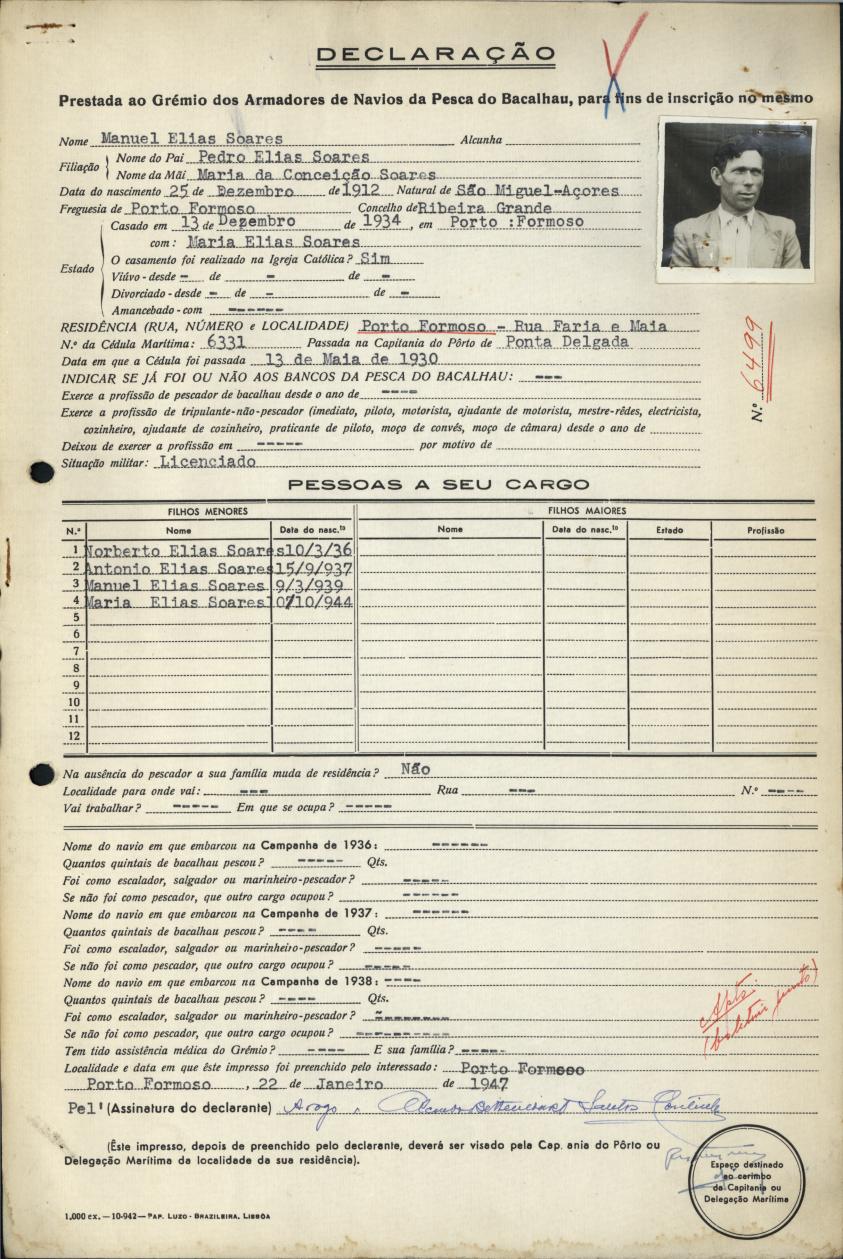 DECLARAÇÃO
Prestada ao Grémio dos Armadores de Navios da Pesca do Bacalhau, para fins de inscrição no mesmo
Nome Manuel Elias Soares Alcunha
Filiação Nome do Pai Pedro Elias Soares
Nome da Mãi Maria da Conceição Soares
Data do nascimento 25 de Dezembro de 1912 Natural de São Miguel-Açores
Freguesia de Porto Formoso Concelho de Ribeira Grande
Casado em 13 de Dezembro de 1934, em Porto :Formoso
com: Maria Elias Soares
Estado O casamento foi realizado na Igreja Católica? Sim
Viúvo - desde - de - de -
Divorciado - desde - de - de -
Amancebado - com -----
RESIDÊNCIA (RUA, NÚMERO e LOCALIDADE) Porto Formoso - Rua Faria e Maia
N.º da Cédula Marítima: 6331 Passada na Capitania do Pôrto de Ponta Delgada
Data em que a Cédula foi passada 13 de Maia de 1930
INDICAR SE JÁ FOI OU NÃO AOS BANCOS DA PESCA DO BACALHAU: ---
Exerce a profissão de pescador de bacalhau desde o ano de ----
Exerce a profissão de tripulante-não-pescador (imediato, piloto, motorista, ajudante de motorista, mestre-rêdes, electricista,
cozinheiro, ajudante de cozinheiro, praticante de piloto, moço de convés, moço de câmara) desde o ano de
Deixou de exercer a profissão em ----- por motivo de
Situação militar: Licenciado
N.º 6499
PESSOAS A SEU CARGO
FILHOS MENORES FILHOS MAIORES
N.º Nome Data do nasc.to Nome Data do nasc.to Estado Profissão
1 Norberto Elias Soares 10/3/36
2 Antonio Elias Soares 15/9/937
3 Manuel Elias Soares 9/3/939
4 Maria Elias Soares 10/10/944
5
6
7
8
9
10
11
12
Na ausência do pescador a sua família muda de residência? Não
Localidade para onde vai: --- Rua --- N.º ----
Vai trabalhar? ----- Em que se ocupa? -----
Nome do navio em que embarcou na Campanha de 1936: ------
Quantos quintais de bacalhau pescou? ----- Qts.
Foi como escalador, salgador ou marinheiro-pescador? -----
Se não foi como pescador, que outro cargo ocupou? ------
Nome do navio em que embarcou na Campanha de 1937: ------
Quantos quintais de bacalhau pescou? ---- Qts.
Foi como escalador, salgador ou marinheiro-pescador? -----
Se não foi como pescador, que outro cargo ocupou? -----
Nome do navio em que embarcou na Campanha de 1938: ----
Quantos quintais de bacalhau pescou? ---- Qts.
Foi como escalador, salgador ou marinheiro-pescador? --------
Se não foi como pescador, que outro cargo ocupou? ----------
Tem tido assistência médica do Grémio? ---- E sua família? -----
Localidade e data em que êste impresso foi preenchido pelo interessado: Porto Formoso
Porto Formoso, 22 de Janeiro de 1947
Apto.
(boletim junto)
Pel' (Assinatura do declarante) A rogo, Bettencourt Santos
(Êste impresso, depois de preenchido pelo declarante, deverá ser visado pela Cap. ania do Pôrto ou
Delegação Marítima da localidade da sua residência).
Espaço destinado
ao carimbo
da Capitania ou
Delegação Marítima
1,000 ex. — 10-942 — PAP. LUZO - BRAZILEIRA, LISBÔA